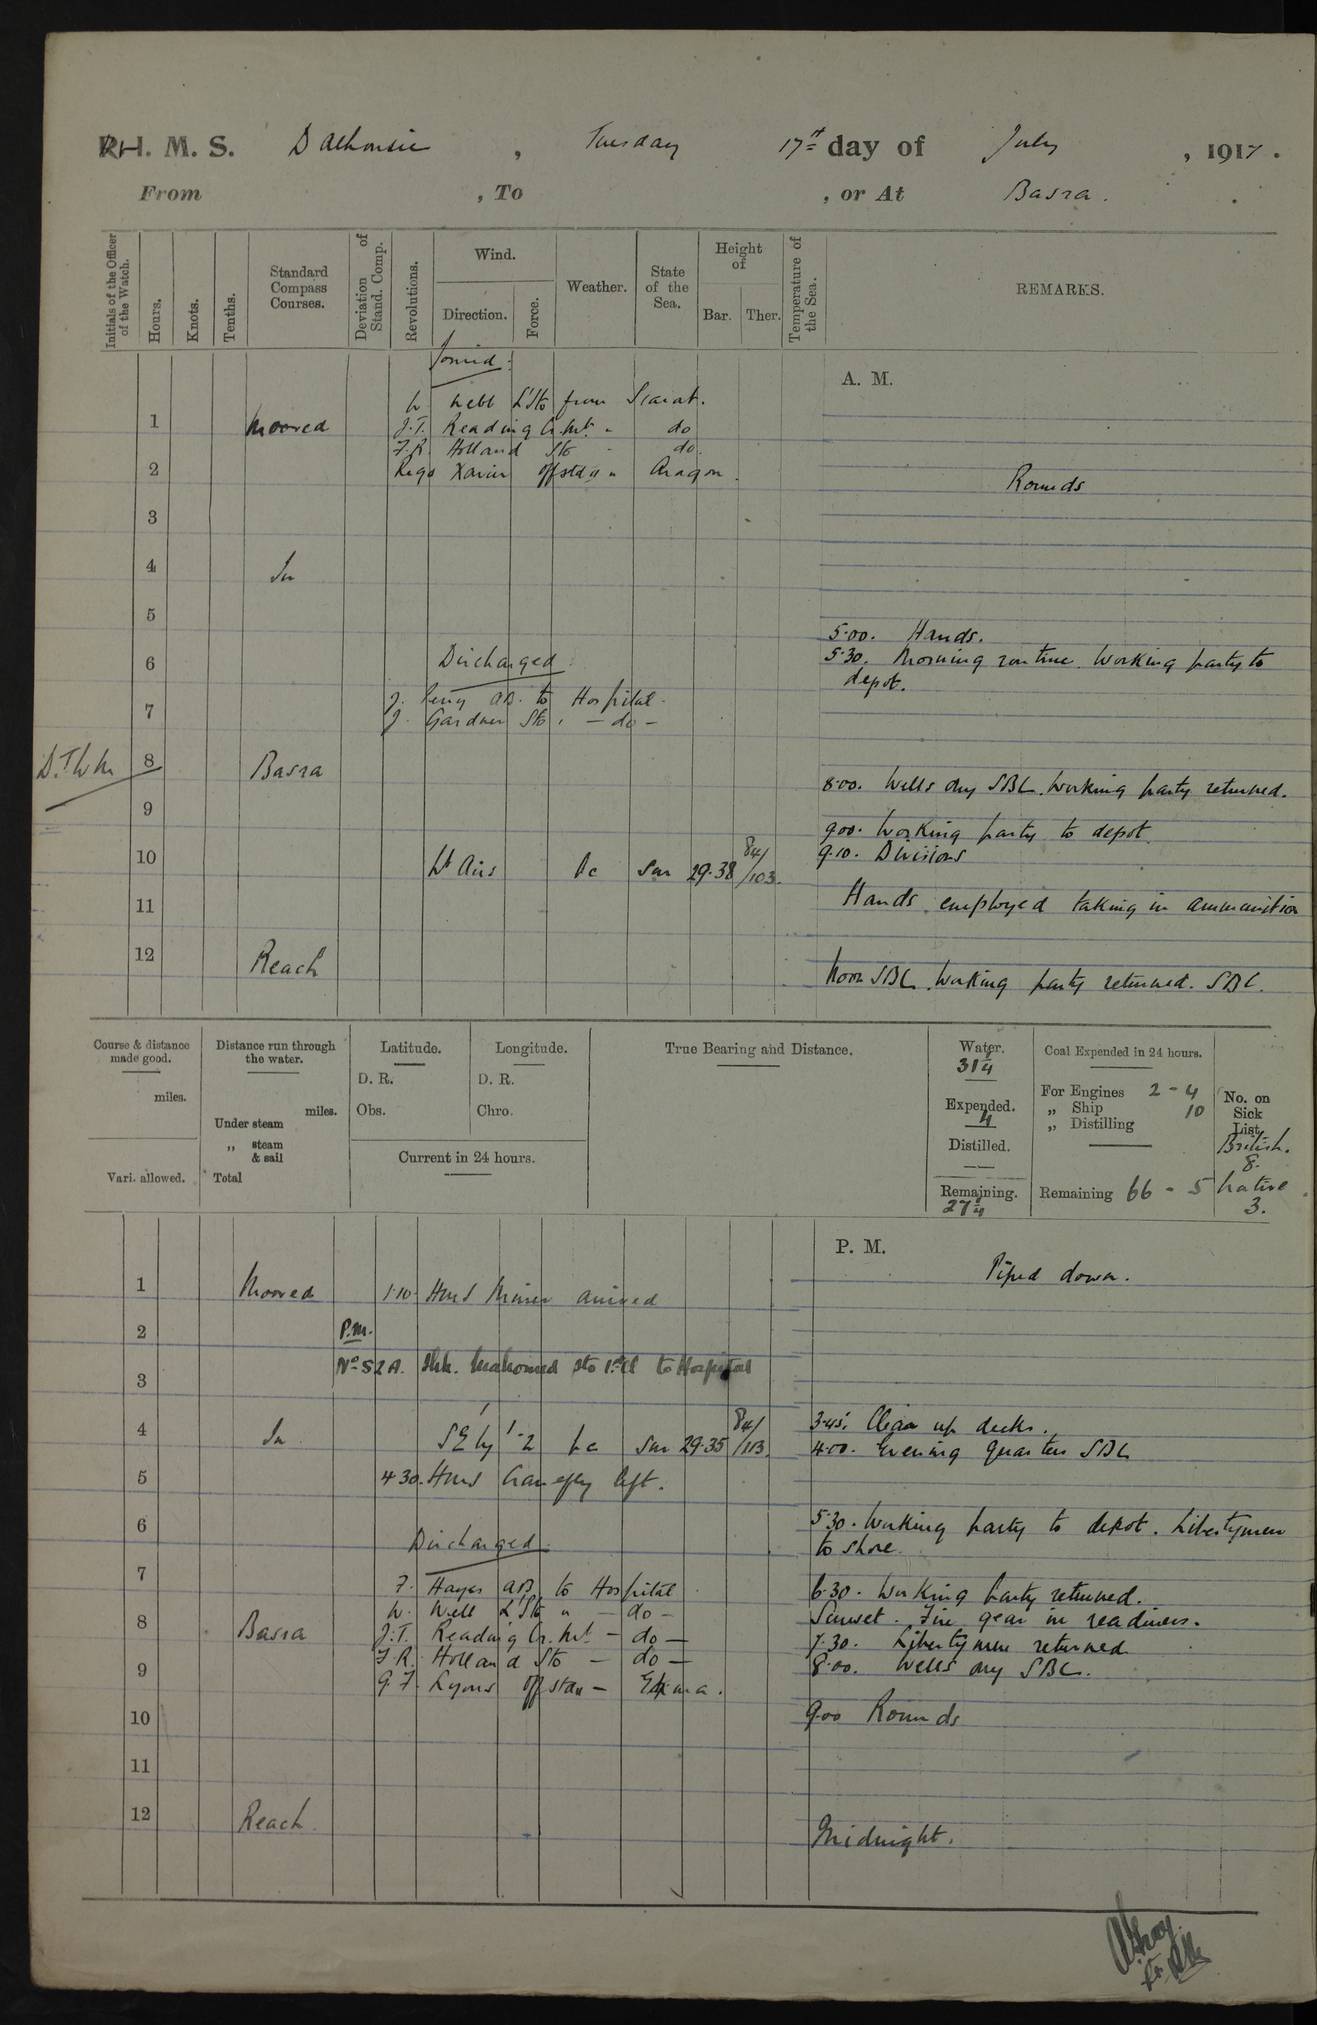 R.I.M.S. Dalhousie, Tuesday 17th day of July, 1917.
From , To , or At Basra.
Initials of the Officer of the Watch.
Hours.
Knots.
Tenths.
Standard Compass Courses.
Deviation of Stand. Comp.
Revolutions.
Wind.
Direction.
Force.
Weather.
State of the Sea.
Height of
Bar.
Ther.
Temperature of the Sea.
REMARKS.
Joined:
A. M.
W Webb L'Sto from Scarab.
1 Moored J.T. Reading Cr. Mt. " do
F.R. Holland Sto - do.
2 Rego Xavier Offstd " Aragon.
Rounds
3
4 In
5
5.00. Hands.
6 Discharged
5.30. Morning routine. Working party to
depot.
J. Perry AB. to Hospital.
7 J. Gardner Sto. - do -
8 Basra
8.00. Wells dry SBC. Working party returned.
9
9.00. Working party to depot.
9.10. Divisions
10 Lt Airs bc Sm 29.38 84/103.
11 Hands employed taking in ammunition
12 Reach
Noon SBC. Working party returned. SBC.
Course & distance made good.
miles.
Vari. allowed.
Distance run through the water.
miles.
Under steam
„ steam & sail
Total
Latitude.
D. R.
Obs.
Longitude.
D. R.
Chro.
Current in 24 hours.
True Bearing and Distance.
Water.
31¼
Expended.
4
Distilled.
—
Remaining.
27¼
Coal Expended in 24 hours.
For Engines 2 - 4
„ Ship 10
„ Distilling
Remaining 66 - 5
No. on Sick List.
British.
8.
Native
3.
P. M.
Piped down.
1 Moored 1.10 HMS Miner arrived
2 P.M.
No 52A. Shk. Mahomed Sto 1st Cl to Hospital
3
3.45. Clean up decks.
4 In SE'ly 1-2 bc Sm 29.35 84/113.
4.00. Evening quarters SBC
5 4.30. HMS Cranefly left.
6
5.30. Working party to depot. Libertymen
to shore.
Discharged
7
F. Hayes AB. to Hospital
6.30. Working party returned.
W. Webb L'Sto " - do -
Sunset. Fire gear in readiness.
8 Basra J.T. Reading Cr. Mt. - do -
7.30. Libertymen returned
F.R. Holland Sto - do -
8.00. Wells dry SBC.
9 G.F. Lyons Offstd -
9.00 Rounds
10
11
12 Reach
Midnight.